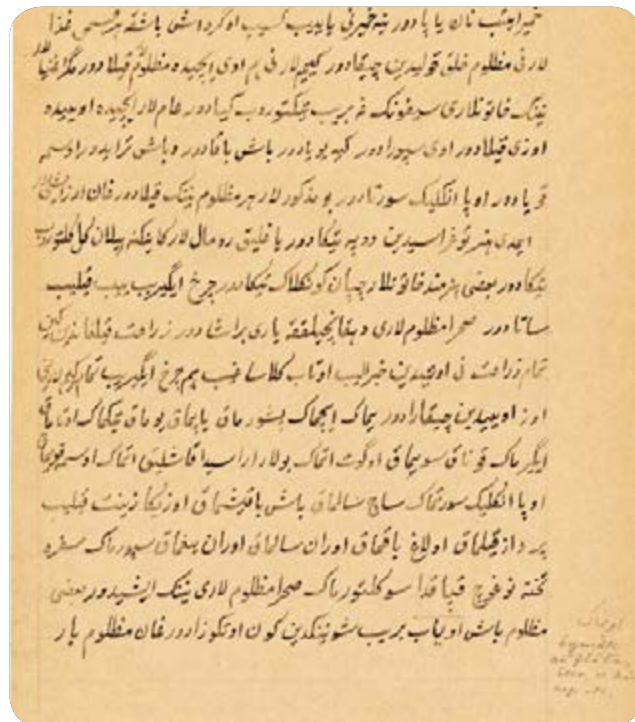 خمیر ایتیب نان یاپادور ینه خمیرنی یاییب کسیب اوگره اش باشقه هر قسمی غذا
لارنی مظلوم خلق قولیدین چیقادور کییم لارنی هم اوی ایچیده مظلوم قیلادور مگر اغنیا
نینک خاتونلاری غه بریب تیکتوروب کیادور عام لار ایچیده اوییده
اوزی قیلادور اوی سپورادور کیر یویادور باش باقادور و باش تارایدور اوسمه
قویادور اوپا انکلیک سورتادور بو مذکور لار هر مظلوم نینک قیلادورغان
ایمدی هنر توغراسیدین دوپه تیکادور یاغلیق رومال لارگا یکنه بیلان گل کلتوروب
تیکادور بعضی هنرمند خاتونلار چپان کونکلاک تیکادور چرخ ایگیریب ییب قیلیب
ساتادور صحرا مظلوم لاری دهقانچیلیققه یاری براشادور زراعت قیلغاندین کین
تمام زراعت نی اوییدین اوتاب هم چرخ ایگیریب تمام کییم لارنی
اوز اوییدین چیقارادور ییماک ایچماک پشورماق یاپماق یوماق تیکماک
ایگیرماک قوناق سویماق اوگوت اتماک بولار اراسیدا قاشلیق اتماک اوسمه قویماق
اوپا انکلیک سورتماک ساچ سالماق باش باقیشماق اوزیگا زینت قیلیب
پرداز قیلماق اولاغ باقماق اوران سالماق اوران یغماق سپورماک سفره
تخته نوغوچ قپاقدا سو کلتورماک صحرا مظلوم لاری نینک ایشیدور بعضی
مظلوم باش اویاب بریب شونینکدین کون اوتکوزادورغان مظلوم بار